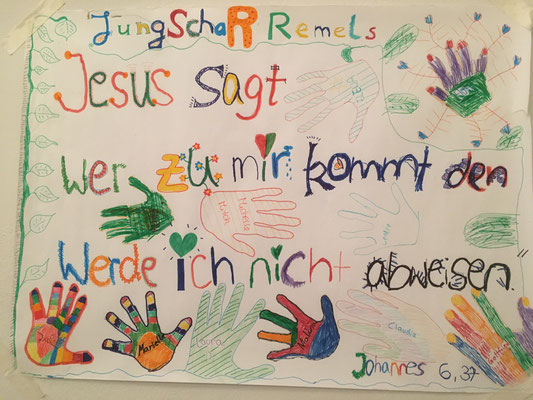 Jungschar Remels
Jesus Sagt
wer zu mir kommt den
Werde ich nicht abweisen."
Johannes 6,37
Laura
Claudia